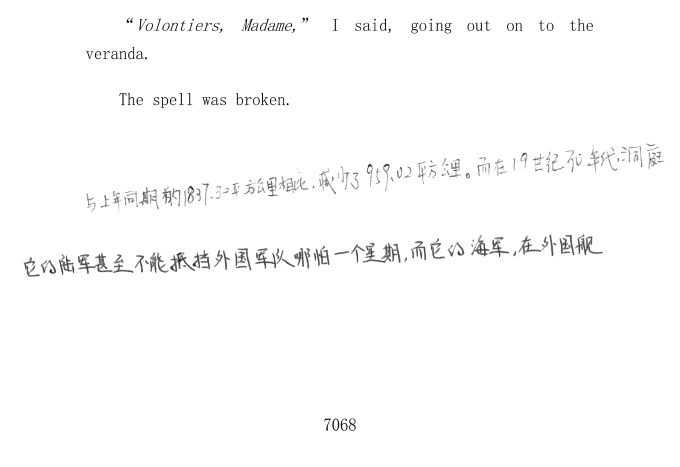 “Volontiers, Madame,” I said, going out on to the
veranda.
The spell was broken.
与上年同期的1837.32平方公里相比,减少了959.02平方公里。而在19世纪50年代,洞庭
它的陆军甚至不能抵挡外国军队哪怕一个星期,而它的海军,在外国舰
7068